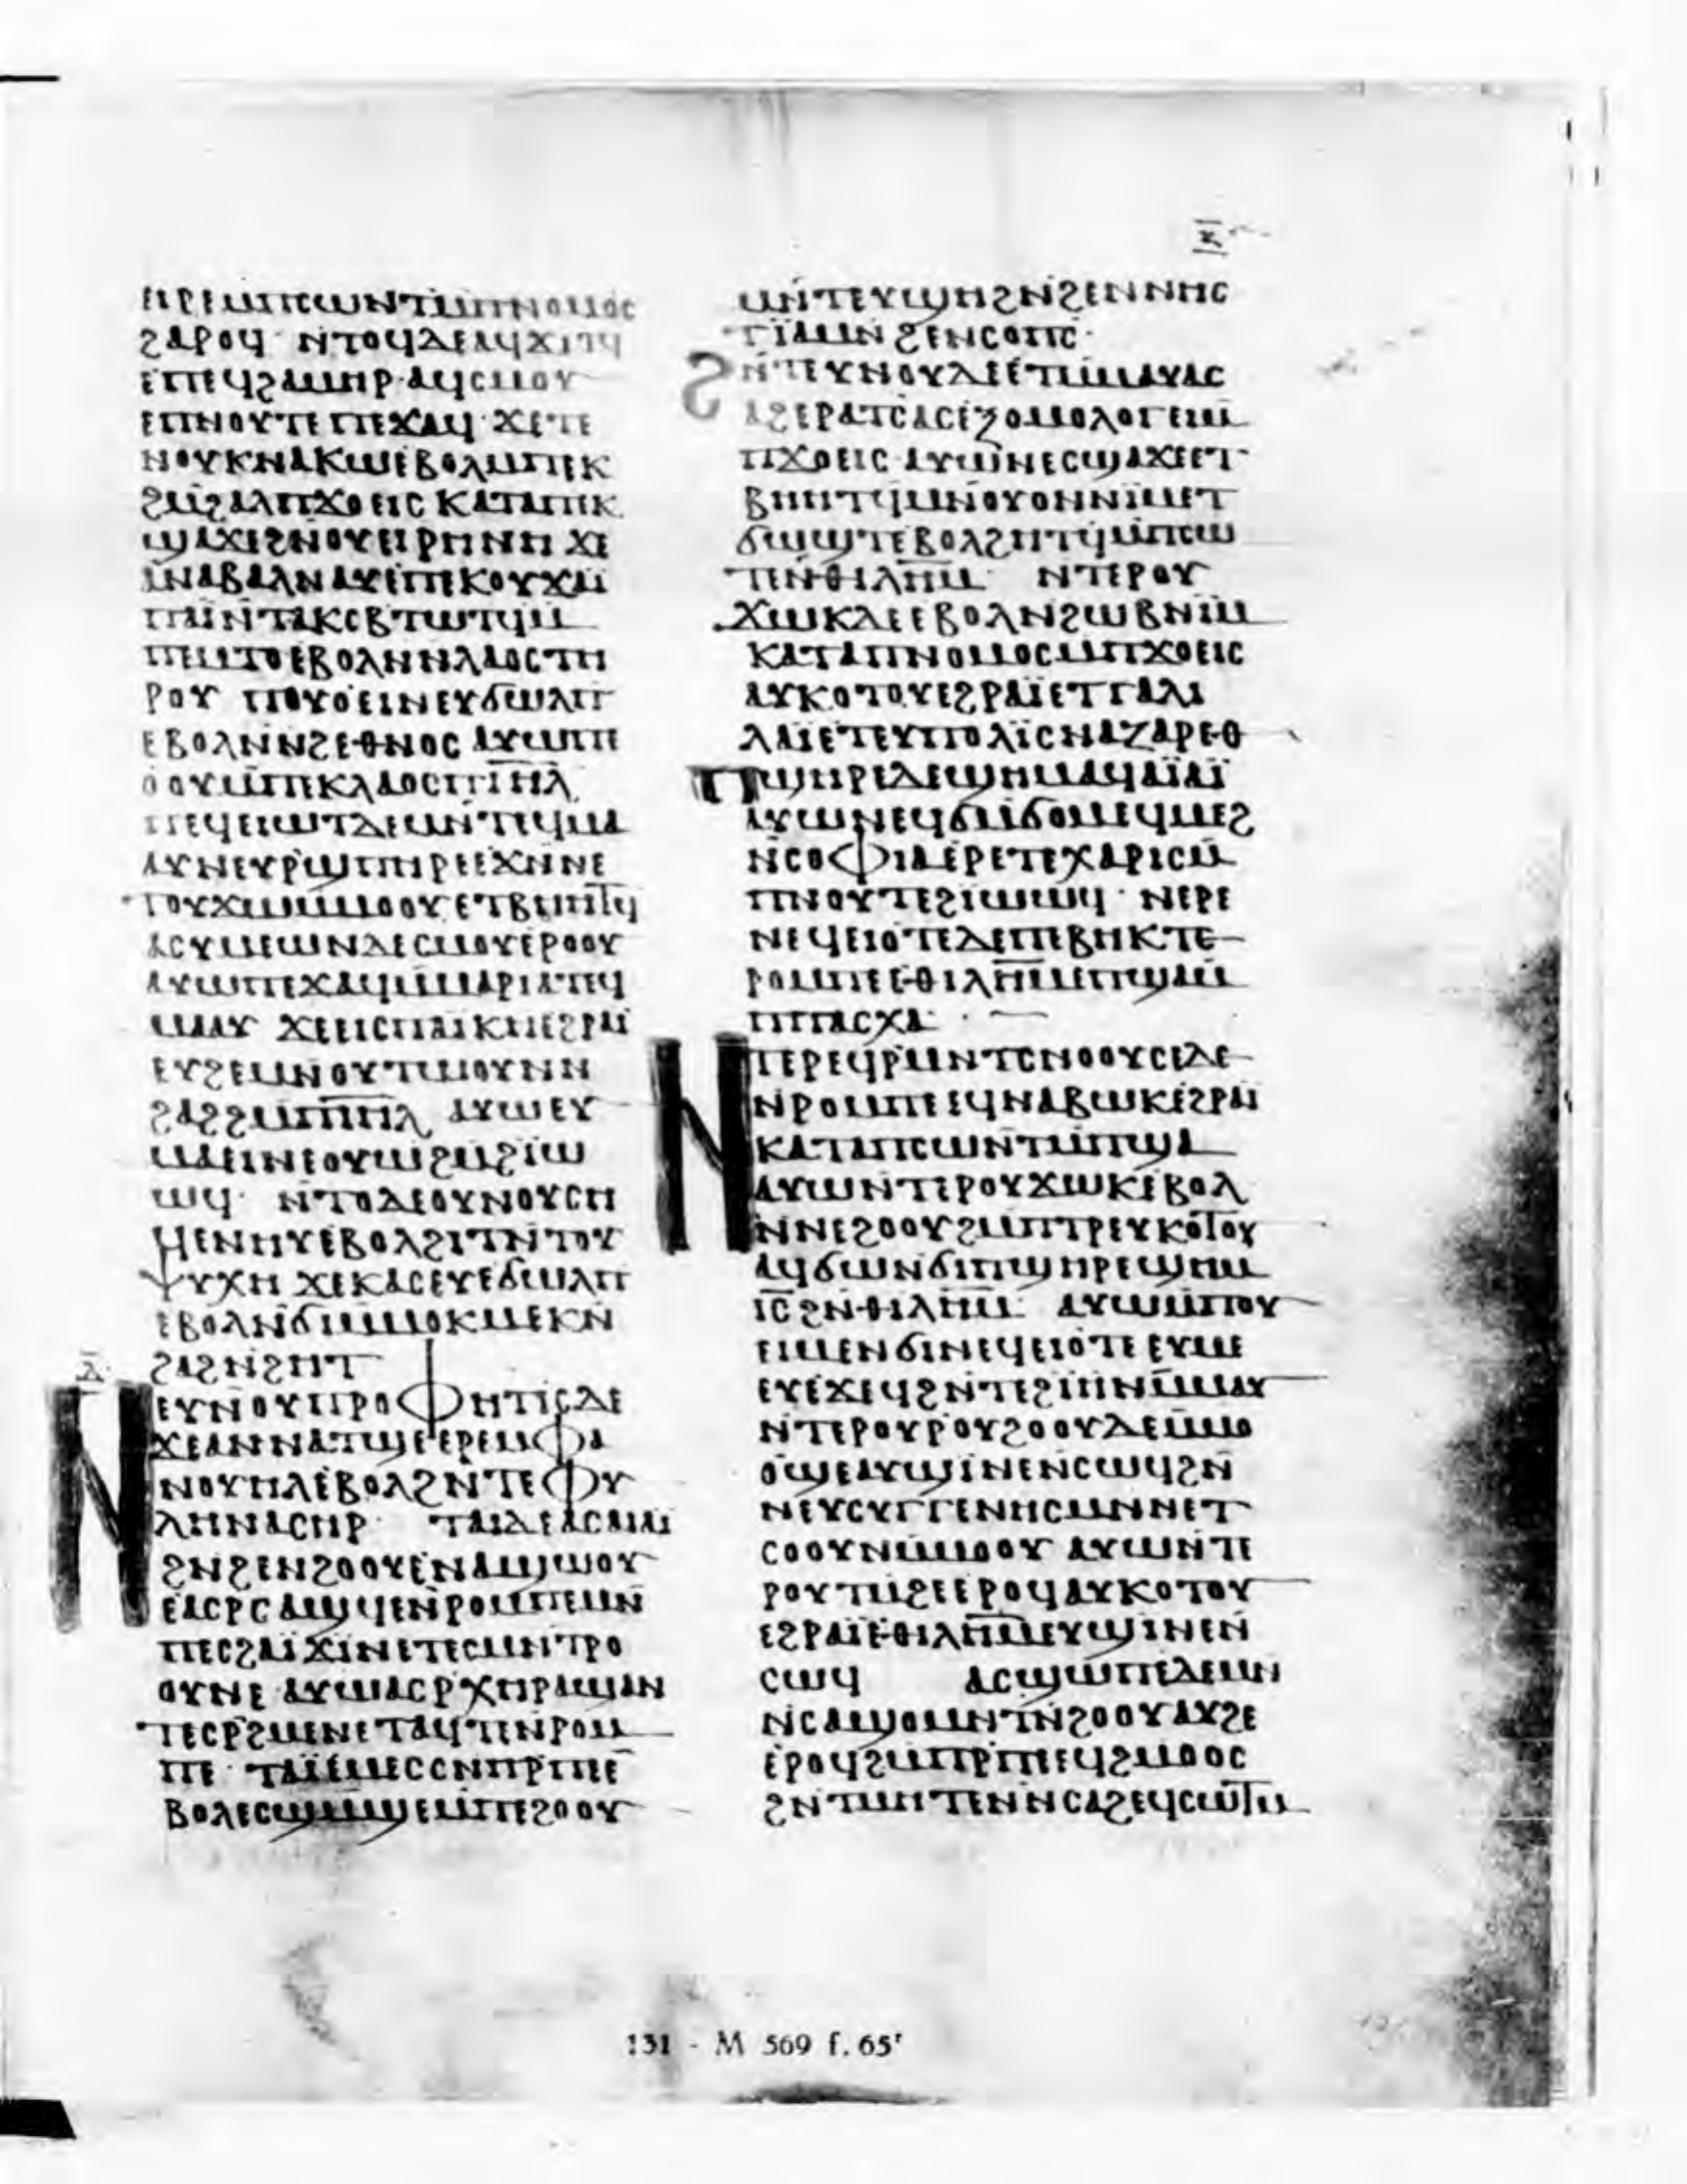 ⲝ̅
ⲏⲣⲉⲙⲡⲥⲱⲛⲧⲙ̅ⲡⲛⲟⲙⲟⲥ
ϩⲁⲣⲟϥ· ⲛ̅ⲧⲟϥⲇⲉⲁϥϫⲓⲧϥ
ⲉⲡⲉϥϩⲁⲙⲏⲣ·ⲁϥⲥⲙⲟⲩ
ⲉⲡⲛⲟⲩⲧⲉⲡⲉϫⲁϥ· ϫⲉⲧⲉ
ⲛⲟⲩⲕⲛⲁⲕⲱⲉⲃⲟⲗⲙ̅ⲡⲉⲕ
ϩⲙ̅ϩⲁⲗⲡϫⲟⲉⲓⲥ ⲕⲁⲧⲁⲡⲉⲕ
ϣⲁϫⲉϩⲛ̅ⲟⲩⲉⲓⲣⲏⲛⲏ ϫⲉ
ⲁⲛⲁⲃⲁⲗⲛⲁⲩⲉⲡⲉⲕⲟⲩϫⲁⲓ
ⲡⲁⲓⲛ̅ⲧⲁⲕⲥⲃ̅ⲧⲱⲧϥⲙ̅
ⲡⲉⲙⲧⲟⲉⲃⲟⲗⲛⲛⲗⲁⲟⲥⲧⲏ
ⲣⲟⲩ ⲡⲟⲩⲟⲉⲓⲛⲉⲩϭⲱⲗⲡ
ⲉⲃⲟⲗⲛⲛϩⲉⲑⲛⲟⲥ ⲁⲩⲱⲡⲉ
ⲟⲟⲩⲙ̅ⲡⲉⲕⲗⲁⲟⲥⲡⲓ̅ⲏ̅ⲗ̅
ⲡⲉϥⲉⲓⲱⲧⲇⲉⲙⲛ̅ⲧⲉϥⲙⲁ
ⲁⲩⲛⲉⲩⲣ̅ϣⲡⲏⲣⲉⲉϫⲛ̅ⲛⲉ
ⲧⲟⲩϫⲱⲙ̅ⲙⲟⲟⲩⲉⲧⲃⲏⲏⲧϥ
ⲁⲥⲩⲙⲉⲱⲛⲇⲉⲥⲙⲟⲩⲉⲣⲟⲟⲩ
ⲁⲩⲱⲡⲉϫⲁϥⲙ̅ⲙⲁⲣⲓⲁⲧⲉϥ
ⲙⲁⲁⲩ ϫⲉⲉⲓⲥⲡⲁⲓⲕⲏⲉϩⲣⲁⲓ
ⲉⲩϩⲉⲙⲛⲟⲩⲧⲱⲟⲩⲛⲛ
ϩⲁϩϩⲙⲡⲓ̅ⲏ̅ⲗ̅ ⲁⲩⲱⲉⲩ
ⲙⲁⲉⲓⲛⲉⲟⲩⲱϩⲙ̅ϩⲓⲱ
ⲱϥ· ⲛ̅ⲧⲟⲇⲉⲟⲩⲛⲟⲩⲥⲏ
ϥⲉⲛⲏⲩⲉⲃⲟⲗϩⲓⲧⲛ̅ⲧⲟⲩ
ⲯⲩⲭⲏ ϫⲉⲕⲁⲥⲉⲩⲉϭⲱⲗⲡ
ⲉⲃⲟⲗⲛ̅ϭⲓⲙⲙⲟⲕⲙⲉⲕⲛ̅
ϩⲁϩⲛ̅ϩⲏⲧ
ⲇ̅
ⲛⲉⲩⲛ̅ⲟⲩⲡⲣⲟⲫⲏⲧⲓⲥⲇⲉ
ϫⲉⲁⲛⲛⲁⲧϣⲉⲉⲣⲉⲙⲫⲁ
ⲛⲟⲩⲏⲗⲉⲃⲟⲗϩⲛ̅ⲧⲉⲫⲩ
ⲗⲏⲛⲁⲥⲏⲣ ⲧⲁⲓⲇⲉⲁⲥⲁⲓⲁⲓ
ϩⲛϩⲉⲛϩⲟⲟⲩⲉⲛⲁϣⲱⲟⲩ
ⲉⲁⲥⲣⲥⲁϣϥⲉⲛ̅ⲣⲟⲙⲡⲉⲙⲛ̅
ⲡⲉⲥϩⲁⲓ̈ϫⲓⲛⲉⲧⲉⲥⲙⲛ̅ⲧⲣⲟ
ⲟⲩⲛⲉ ⲁⲩⲱⲁⲥⲣ̅ⲭⲏⲣⲁϣⲁⲛ
ⲧⲉⲥⲣ̅ϩⲙⲉⲛⲉⲧⲁϥⲧⲉⲛ̅ⲣⲟⲙ
ⲡⲉ· ⲧⲁⲓ̈ⲉⲙⲉⲥⲥⲛⲡⲣ̅ⲡⲉⲉ̅
ⲃⲟⲗⲉⲥϣⲙ̅ϣⲉⲙ̅ⲡⲉϩⲟⲟⲩ
ⲙⲛ̅ⲧⲉⲩϣⲏϩⲛ̅ϩⲉⲛⲛⲏⲥ
ⲧⲓ̈ⲁⲙⲛϩⲉⲛⲥⲟⲡⲥ·
ϩⲛ̅ⲧⲉⲩⲛⲟⲩⲇⲉⲉⲧⲙ̅ⲙⲁⲩⲁⲥ
ⲁϩⲉⲣⲁⲧⲥ̅ⲁⲥⲉⲝⲟⲙⲟⲗⲟⲅⲉⲓⲙ̅
ⲡϫⲟⲉⲓⲥ·ⲁⲩⲱⲛⲉⲥϣⲁϫⲉⲉⲧ
ⲃⲏⲏⲧϥⲙⲛ̅ⲟⲩⲟⲛⲛⲓⲙⲉⲧ
ϭⲱϣⲧⲉⲃⲟⲗϩⲏⲧϥⲙ̅ⲡⲥⲱ
ⲧⲉⲛ̅ⲑⲓⲗⲏ̅ⲙ̅· ⲛⲧⲉⲣⲟⲩ
ϫⲱⲕⲇⲉⲉⲃⲟⲗⲛϩⲱⲃⲛⲓⲙ
ⲕⲁⲧⲁⲡⲛⲟⲙⲟⲥⲙⲡϫⲟⲉⲓⲥ
ⲁⲩⲕⲟⲧⲟⲩⲉϩⲣⲁⲓ̈ⲉⲧⲅⲁⲗⲓ
ⲗⲁⲓ̈ⲉⲧⲉⲩⲡⲟⲗⲓ̈ⲥⲛⲁⲍⲁⲣⲉⲑ
ⲡϣⲏⲣⲉⲇⲉϣⲏⲙⲁϥⲁⲓ̈ⲁⲓ̈
ⲁⲩⲱⲛⲉϥϭⲙ̅ϭⲟⲙⲉϥⲙⲉϩ
ⲛ̅ⲥⲟⲫⲓⲁⲉⲣⲉⲧⲉⲭⲁⲣⲓⲥⲙ̅
ⲡⲛⲟⲩⲧⲉϩⲓⲱⲱϥ· ⲛⲉⲣⲉ
ⲛⲉϥⲉⲓⲟⲧⲉⲇⲉⲡⲉⲃⲏⲕⲧⲉ
ⲣⲟⲙⲡⲉⲉⲑⲓⲗⲏ̅ⲙ̅ⲉⲡϣⲁⲙ̅
ⲡⲡⲁⲥⲭⲁ·
ⲛⲧⲉⲣⲉϥⲣ̅ⲙⲛⲧⲥⲛⲟⲟⲩⲥⲉⲇⲉ
ⲛⲣⲟⲙⲡⲉⲉϥⲛⲁⲃⲱⲕⲉϩⲣⲁⲓ
ⲕⲁⲧⲁⲡⲥⲱⲛ̅ⲧⲙ̅ⲡϣⲁ
ⲁⲩⲱⲛ̅ⲧⲉⲣⲟⲩϫⲱⲕⲉⲃⲟⲗ
ⲛⲛⲉϩⲟⲟⲩϩⲙ̅ⲡⲧⲣⲉⲩⲕⲟⲧⲟⲩ
ⲁϥϭⲱⲛϭⲓⲡϣⲏⲣⲉϣⲏⲙ
ⲓ̅ⲥ̅ϩⲛ̅ⲑⲓⲗⲏ̅ⲙ̅· ⲁⲩⲱⲙ̅ⲡⲟⲩ
ⲉⲓⲙⲉⲛϭⲓⲛⲉϥⲉⲓⲟⲧⲉⲉⲩⲙⲉ
ⲉⲩⲉϫⲉϥϩⲛ̅ⲧⲉϩⲓⲏⲛⲙ̅ⲙⲁⲩ
ⲛ̅ⲧⲉⲣⲟⲩⲣⲟⲩϩⲟⲟⲩⲇⲉⲙ̅ⲙⲟ
ⲟϣⲉⲁⲩϣⲓⲛⲉⲛⲥⲱϥϩⲛ̅
ⲛⲉⲩⲥⲩⲅⲅⲉⲛⲏⲥⲙⲛⲛⲉⲧ
ⲥⲟⲟⲩⲛⲙ̅ⲙⲟⲟⲩ ⲁⲩⲱⲛ̅ⲧⲉ
ⲣⲟⲩⲧⲙ̅ϩⲉⲉⲣⲟϥⲁⲩⲕⲟⲧⲟⲩ
ⲉϩⲣⲁⲓ̈ⲉⲑⲓⲗⲏ̅ⲙ̅ⲉⲩϣⲓⲛⲉⲛ̅
ⲥⲱϥ ⲁⲥϣⲱⲡⲉⲇⲉⲙⲛ
ⲛ̅ⲥⲁϣⲟⲙⲛ̅ⲧⲛ̅ϩⲟⲟⲩⲁⲩϩⲉ
ⲉⲣⲟϥϩⲙ̅ⲡⲣ̅ⲡⲉⲉϥϩⲙⲟⲟⲥ
ϩⲛⲧⲙⲏⲧⲉⲛ̅ⲛⲥⲁϩⲉϥⲥⲱⲧⲙ
131 - M 569 f. 65ʳ